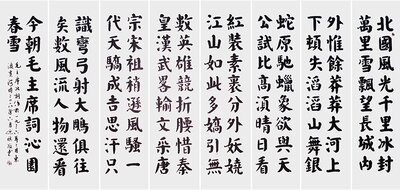 北國風光千里冰封
萬里雪飄望長城內
外惟餘莽莽大河上
下頓失滔滔山舞銀
蛇原馳蠟象欲與天
公試比高須晴日看
紅裝素裹分外妖嬈
江山如此多嬌引無
數英雄競折腰惜秦
皇漢武畧輸文采唐
宗宋祖稍遜風騷一
代天驕成吉思汗只
識彎弓射大鵰俱往
矣數風流人物還看
今朝毛主席詞沁園
春雪